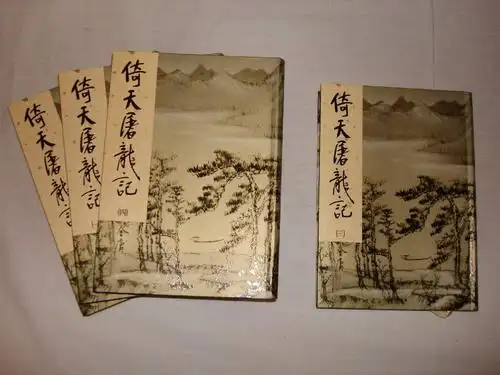 倚天屠龍記
倚天屠龍記
倚天屠龍記
四
倚天屠龍記